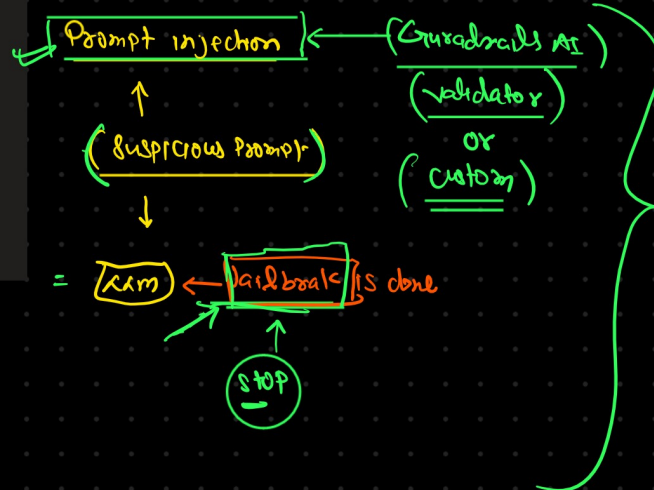 Prompt injection ← (Guradrails AI)
(validator)
or
(Suspicious Prompt)
(custom)
= LLM ← Jailbrak is done
stop